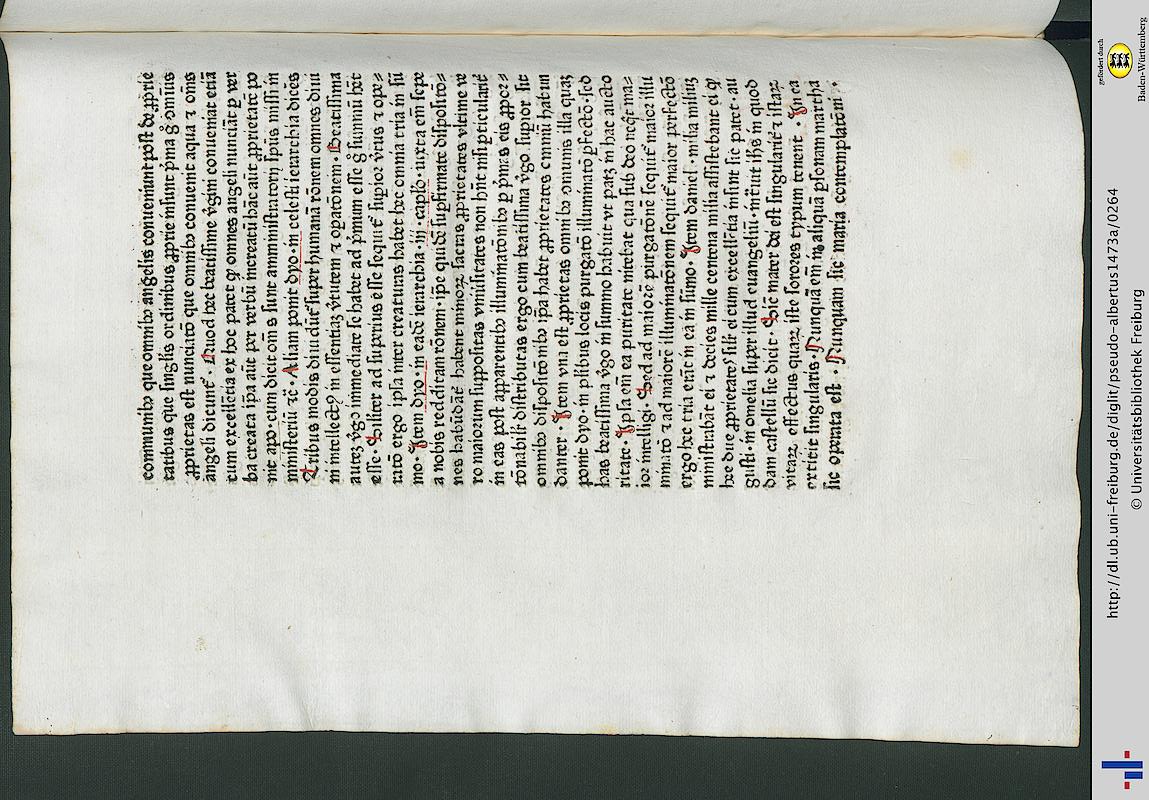 communibꝰ que omnibꝰ angelis conueniunt post de ꝓprie
tatibus que singlis ordinibus ꝓprie insunt pͥma g̊ omniũ
ꝓprietas est nunciatõ que omnibꝰ conuenit aqua ⁊ om̃s
angeli dicunt᷑ · Quod hec beatissime v̾gini conueniat etiã
cum excellẽtia ex hoc patet ꝙ omnes angeli nunciãt ꝑ ver
ba creata ip̃a aũt ꝑer verbũ increatũ hãc aũt ꝓprietatẽ po
nit apo · cum dicit om̃s sunt amministratorij sp̃us missi in
ministeriũ ⁊c̃ · Aliam ponit dyo · in celesti ierarchia dicẽs
Tribus modis diuidit᷑ super humanã rõnem omnes diui
ni intellectꝰ in essentiaꝫ v̾tutem ⁊ oꝑatõnem · Beatissima
auteꝫ v̾go immediate se habet ad pͥmum esse g̊ summũ hẽt
esse · Similiter ad superius ẽ esse sequit᷑ superior v̾tus ⁊ ope⸗
ratõ ergo ipsa inter creaturas habet hec omnia tria in sũ
mo · Item dyo · in eadẽ ierarchia · iij · capl̃o · iuxta em̃ sepe
a nobis redditam rõnem · ip̃e quidẽ sup̃firmate dispositõ⸗
nes habũdãt᷑ habent minoꝝ sacras ꝓprietates vltime ve
ro maiorum suppositas vniuersitates non hñt nisi ꝑticularit᷑
in eas post apparentibꝰ illuminatõnibꝰ ꝑ pͥmas eis ꝓpor⸗
tõnabilit᷑ distributas ergo cum beatissima v̾go superior sit
omnibꝰ dispositõnibꝰ ip̃a habet ꝓprietates omniũ habun
danter · Item vna est ꝓprietas omnibꝰ omnis illa quaꝫ
ponit dyo · in pluribus locis purgatõ illuminatõ ꝑfectõ · sed
has beatissima v̾go in summo habuit vt patꝫ in hac aucto
ritate · Ipsa em̃ ea puritate nitebat qua sub deo neqͥt ma⸗
ior intelligi · Sed ad maiorẽ purgatõnẽ sequit᷑ maior illu
minatõ ⁊ ad maiorẽ illuminatõnem sequit᷑ maior perfectõ
ergo hec tria erãt in ea in sũmo · Item daniel · milia miliũ
ministrabãt ei ⁊ decies mille centena milia assistebant ei ꝙ
he due ꝓprietates sil̃r ei cum excellẽtia insint sic patet · au
gusti · in omelia super illud euangeliũ · intrauit ih̃s in quod
dam castellũ sic dicit · Sic̃ mater dei est singularis ⁊ istaꝝ
vitaꝝ effectus quaꝝ iste sorores typum tenent · In ea
extitit singularis · Nunquã em̃ in aliquã ꝑsonam martha
sic operata est · Nunquam sic maria contemplatõni ·
gefördert durch
Baden-Württemberg
http://dl.ub.uni-freiburg.de/diglit/pseudo-albertus1473a/0264
© Universitätsbibliothek Freiburg